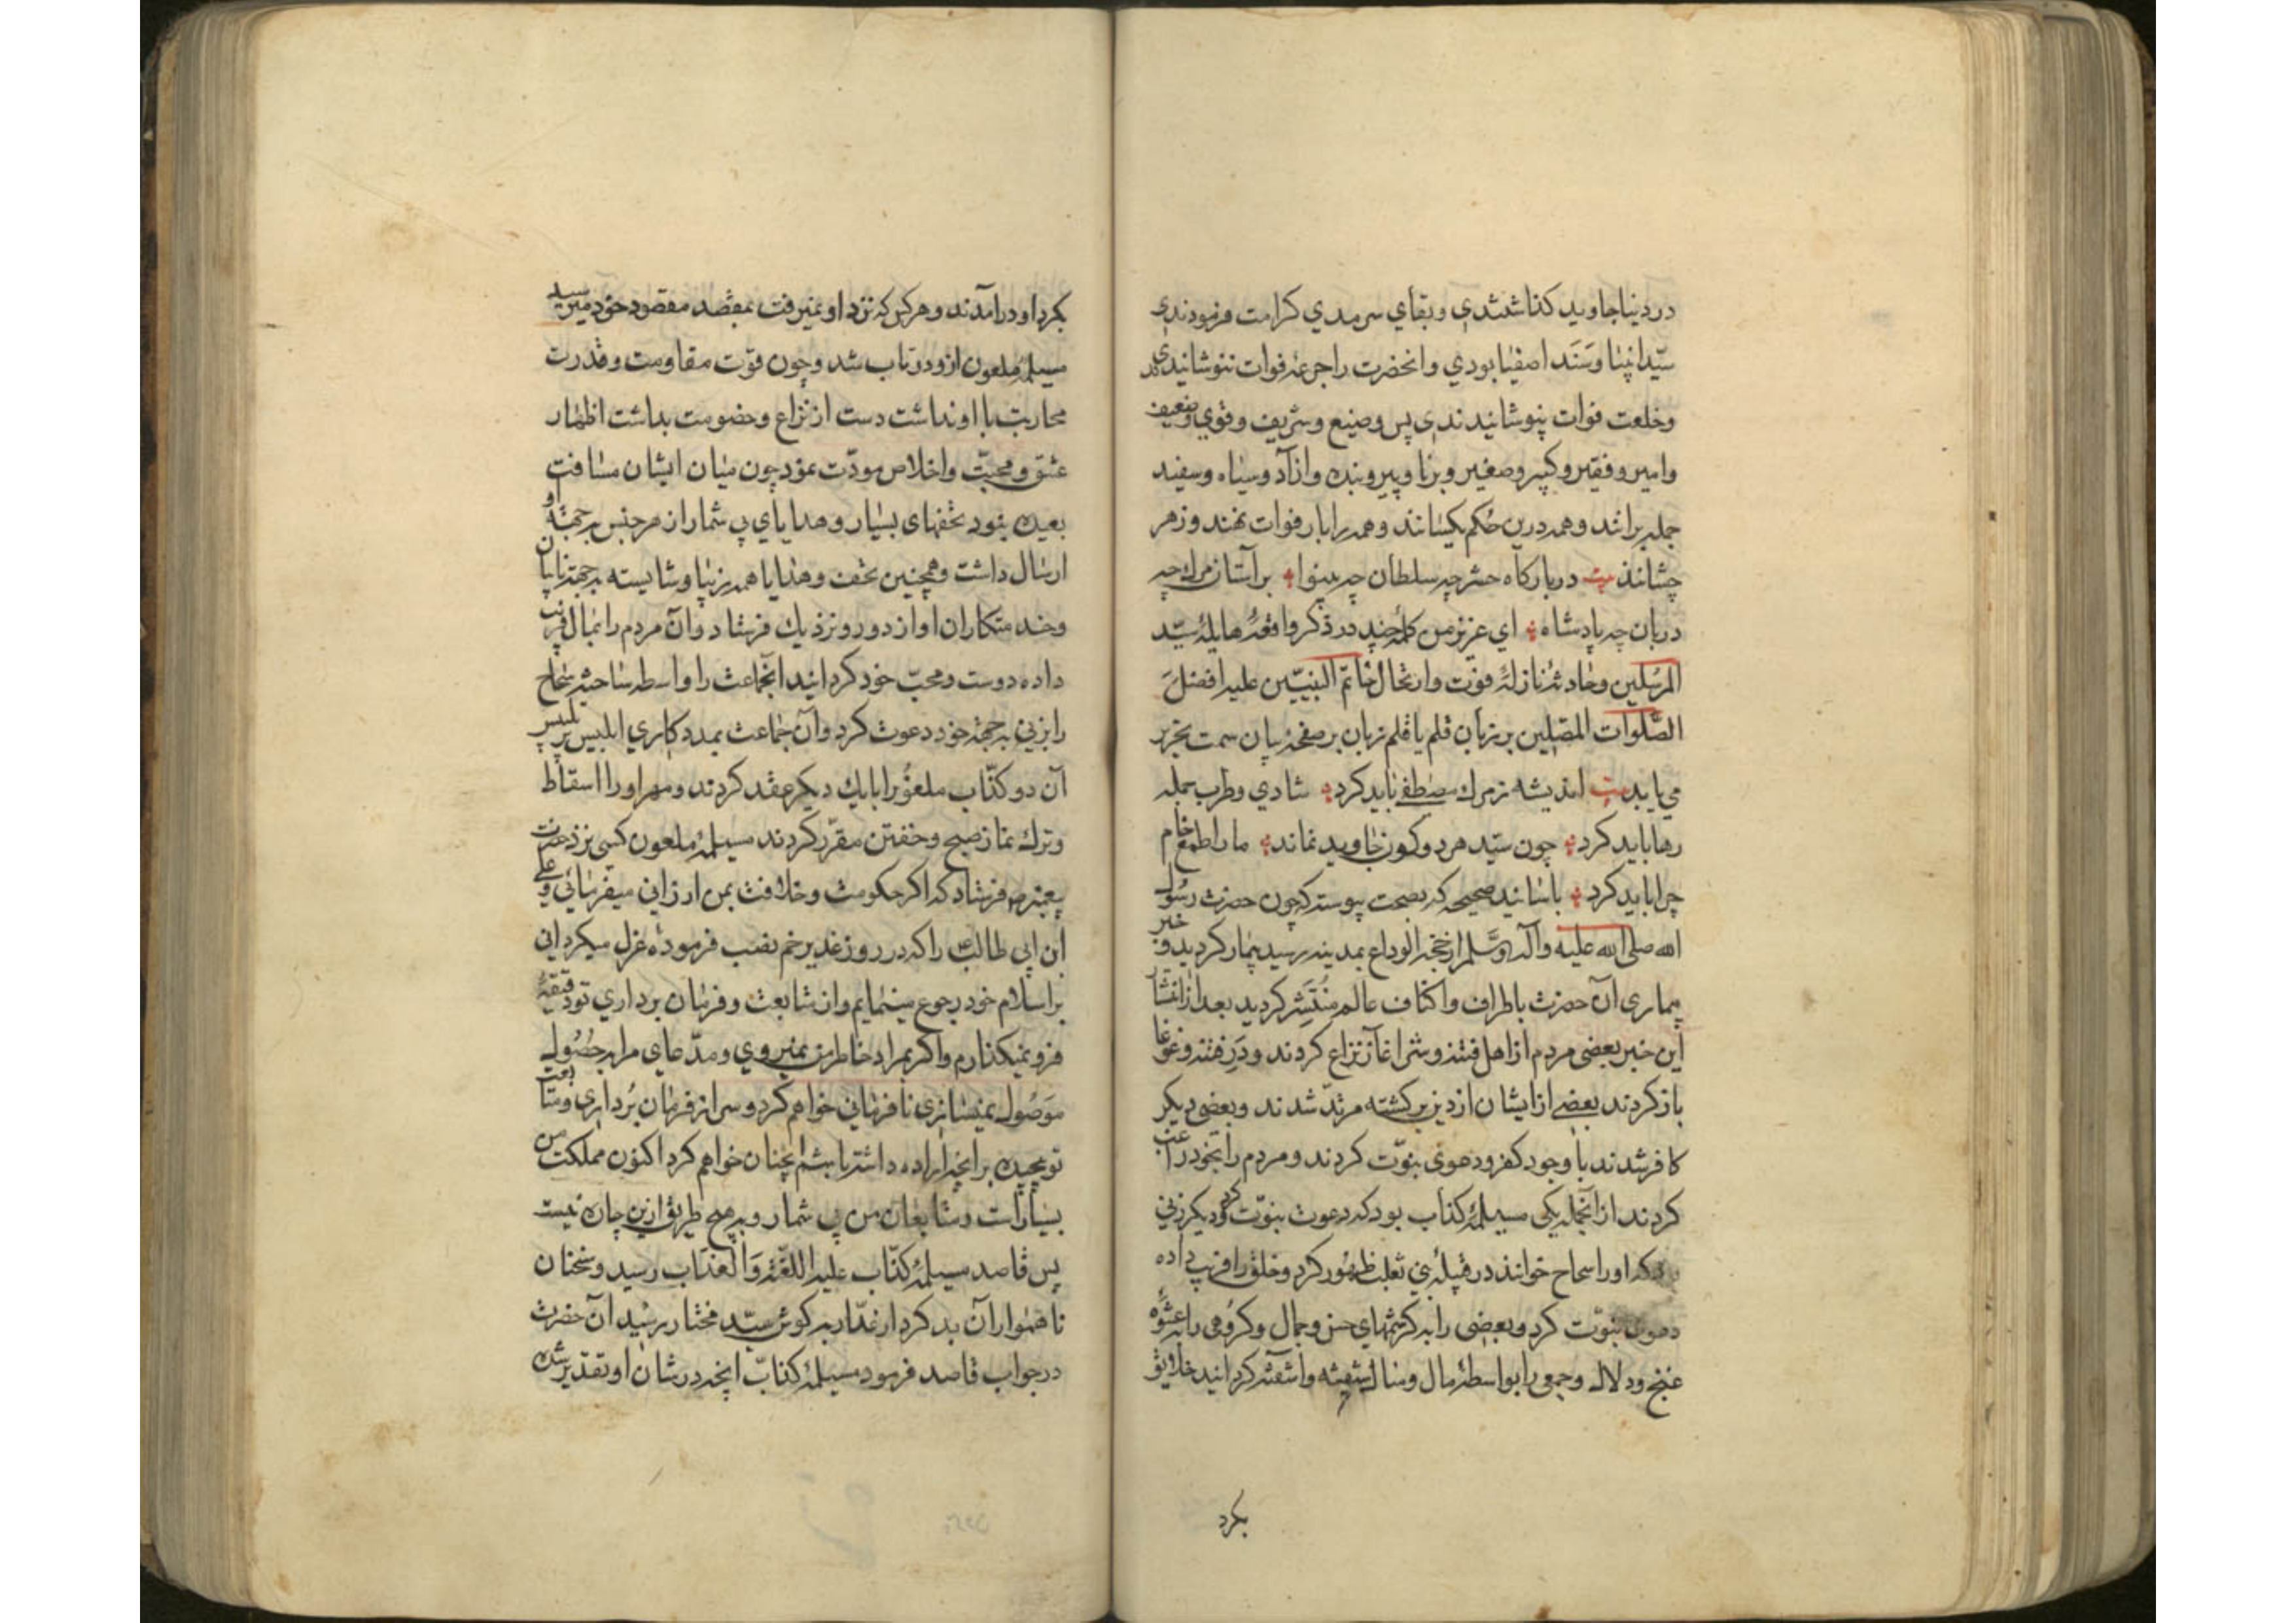 در دنیا جاوید کذاشتندی و بقای سرمدی کرامت فرمودندی
سیّد انبیا و سَنَد اصفیا بودی و انحضرت را جرعهٔ فوات ننوشانیدندی
و خلعت فوات نپوشانیدندی پس وضیع و شریف و قوی و ضعیف
و امیر و فقیر و کبیر و صغیر و برنا و پیر و بنده و ازاد و سیاه و سفید
جمله برانند و همه درین حُکم یکسانند و همه را بار فوات نهند و زهر
چشانند بیت در بارکاه حشر چه سلطان چه بینوا بر آستان مرك چه
دربان چه پادشاه ای عزیز من کلمهٔ چند در ذکر واقعهٔ هایلهٔ سیّد
المرسَلین و حادثهٔ نازلهٔ فوت و ارتحال خاتم النبیّین علیه افضلَ
الصَّلوات المصَلین بر زبان قلم یا قلم زبان بر صفحهٔ بیان سمت تحریر
می یابد بیت اندیشه ز مرك مصطفی باید کرد شادی و طرب جمله
رها باید کرد چون سیّد هر دو کون جاوید نماند ما را طمع خام
چرا باید کرد باسانید صحیحه که بصحت پیوسته که چون حضرت رسُول
الله صلی الله علیه وآله وسَّلم از حجة الوداع بمدینه رسید بیمار کردید و خبر
بیماری آن حضرت باطراف و اکناف عالم مُنتَشِر کردید بعد از انتشار
این خبر بعضی مردم از اهل فتنه و شر اغاز نزاع کردند و دَرِ فتنه و غوغا
باز کردند بعضی از ایشان از دین برکشته مرتدّ شدند و بعضی دیکر
کافر شدند با وجود کفر و دعوی نبوّت کردند و مردم را بخود راغب
کردند از آنجمله یکی مسیلمهٔ کذاب بود که دعوت نبوّت کرد و دیکر زنی
بود که او را سجاح خوانند در قبیلهٔ بنی ثعلب ظهُور کرد و خلق را فریب داده
دعوی نبوّت کرد و بعضی را به کرشمهای حسن و جمال و کروهی را به عشوهٔ
غنج و دلال و جمعی را بواسطهٔ مال و منال شیفته و اشفته کردانید خلایق
بکرد
بکرد او درامدند و هر کس که نزد او نمیرفت بمقصد مقصود خود میرسید
مسیلمهٔ ملعون ازو در تاب شد و چون قوّت مقاومت و قدرت
محاربت با او نداشت دست از نزاع و خصومت بداشت اظهار
عشق و محبّت و اخلاص مودّت نمود چون میان ایشان مسافت
بعیده بنود تحفهای بسیار و هدایای بی شمار از هر جنس بر جهتهٔ او
ارسال داشت و همچنین تحف و هدایا همه زیبا و شایسته بر جهة نایبان
و خدمتکاران او از دور و نزدیك فرستاد و آن مردم را بمال فریب
داده دوست و محبّ خود کردانید انجماعت را واسطه ساخته سجاح
را بزنی بر جهة خود دعوت کرد و آن جماعت بمددکاری ابلیس پر تلبیس
آن دو کذّاب ملعوُن را بایك دیکر عقد کردند و مهر او را اسقاط
و ترك نماز صبح و خفتن مقرّر کردند مسیلمهٔ ملعون کسی نزد حضرت
پیغمبر ص فرستاد که اکر حکومت و خلافت بمن ارزانی میفرمائی و علی
ابن ابی طالب را که در روز غدیر خم نصب فرموده عزل میکردانی
بر اسلام خود رجوع مینمایم و از متابعت و فرمان برداری تو دقیقهٔ
فرو نمیکذارم و اکر بمراد خاطر من نمیروی و مدّعای مرا به حصُول
موَصُول نمیسازی نافرمانی خواهم کرد و سر از فرمان بُرداری و متابعت
تو پیچیده بر انچه اراده داشته باشم انچنان خواهم کرد اکنون مملکت من
بسیارات و متابعان من بی شمار و به هیچ طریق ازین چاره نیست
پس قاصد مسیلمهٔ کذّاب علیه اللّعنة وَ العذَاب رسید و سخنان
ناهموار آن بد کردار غدّار به کوش سیّد مختار رسید ان حضرت
در جواب قاصد فرمود مسیلمهٔ کذّاب انچه در شان او تقدیر شده